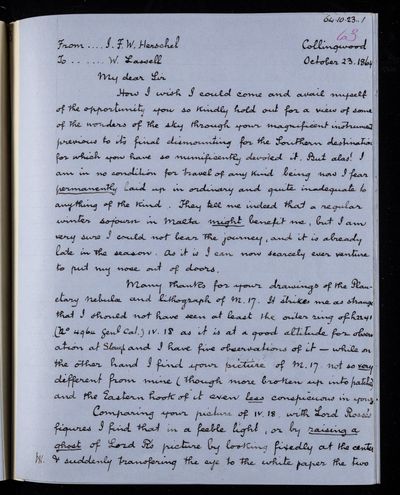 64.10.23.1
63
From .... J. F. W. Herschel Collingwood
To ...... W. Lassell October 23. 1864
My dear Sir
How I wish I could come and avail myself
of the opportunity you so kindly hold out for a view of some
of the wonders of the sky through your magnificent instrument
previous to its final dismounting for the Southern destination
for which you have so munificently devoted it. But alas! I
am in no condition for travel of any kind being now I fear
permanently laid up in ordinary and quite inadequate to
anything of the kind. They tell me indeed that a regular
winter sojourn in Malta might benefit me, but I am
very sure I could not bear the journey, and it is already
late in the season. As it is I can now scarcely ever venture
to put my nose out of doors.
Many thanks for your drawings of the Plan-
etary Nebula and lithograph of M. 17. It strikes me as strange
that I should not have seen at least the outer ring of h2241
(No 4964 Genl Cat.) IV. 18 as it is at a good altitude for observ
ation at Slough and I have five observations of it — while on
the other hand I find your picture of M. 17 not so very
different from mine (though more broken up into patches)
and the Eastern hook of it even less conspicuous in yours.
Comparing your picture of IV. 18 with Lord Rosse's
figures I find that in a feeble light, or by raising a
ghost of Lord R's picture by looking fixedly at the center
& suddenly transfering the eye to the white paper the two